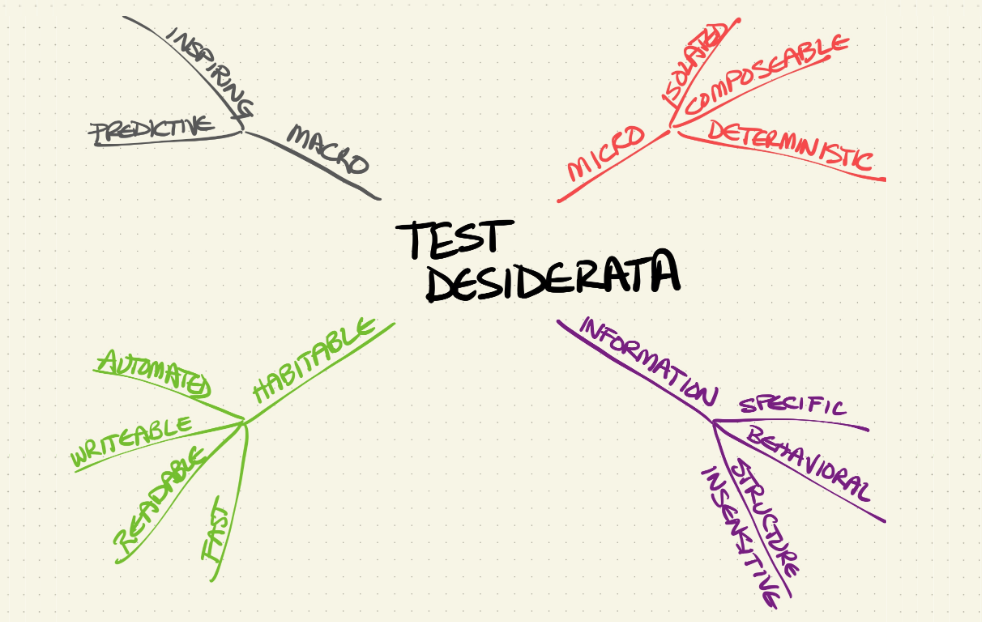 TEST
DESIDERATA
MACRO
INSPIRING
PREDICTIVE
MICRO
ISOLATED
COMPOSEABLE
DETERMINISTIC
HABITABLE
AUTOMATED
WRITEABLE
READABLE
FAST
INFORMATION
SPECIFIC
BEHAVIORAL
STRUCTURE
INSENSITIVE